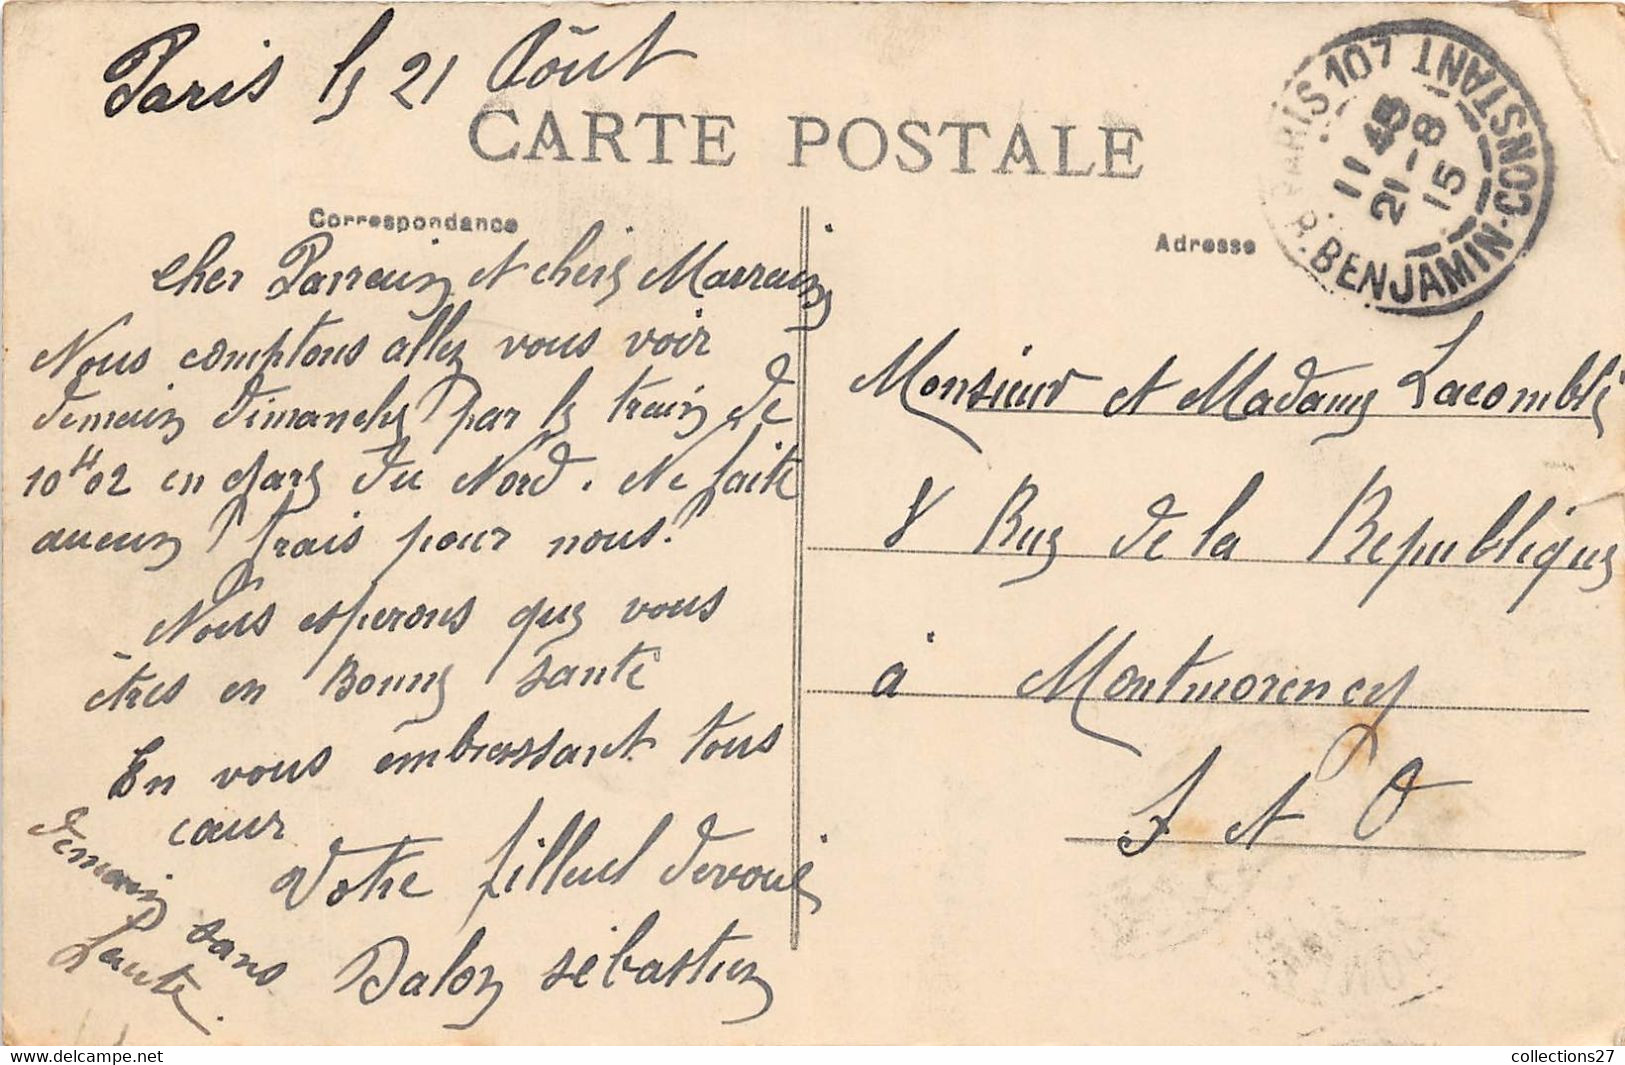 Paris le 21 Août
CARTE POSTALE
PARIS 107
R. BENJAMIN-CONSTANT
11 45
21-8
15
Correspondance
Adresse
Cher Parrain et chere Marraine
Nous comptons allez vous voir
demain dimanche par le train de
10H02 en gare du Nord. Ne faite
aucun frais pour nous.
Nous esperons que vous
êtres en Bonne santé
En vous embrassant tous
cœur
Votre filleul devoué
Dalon sébastien
demain sans
faute.
Monsieur et Madame Lacomble
8 Rue de la Republique
à Montmorency
S et O
collections27